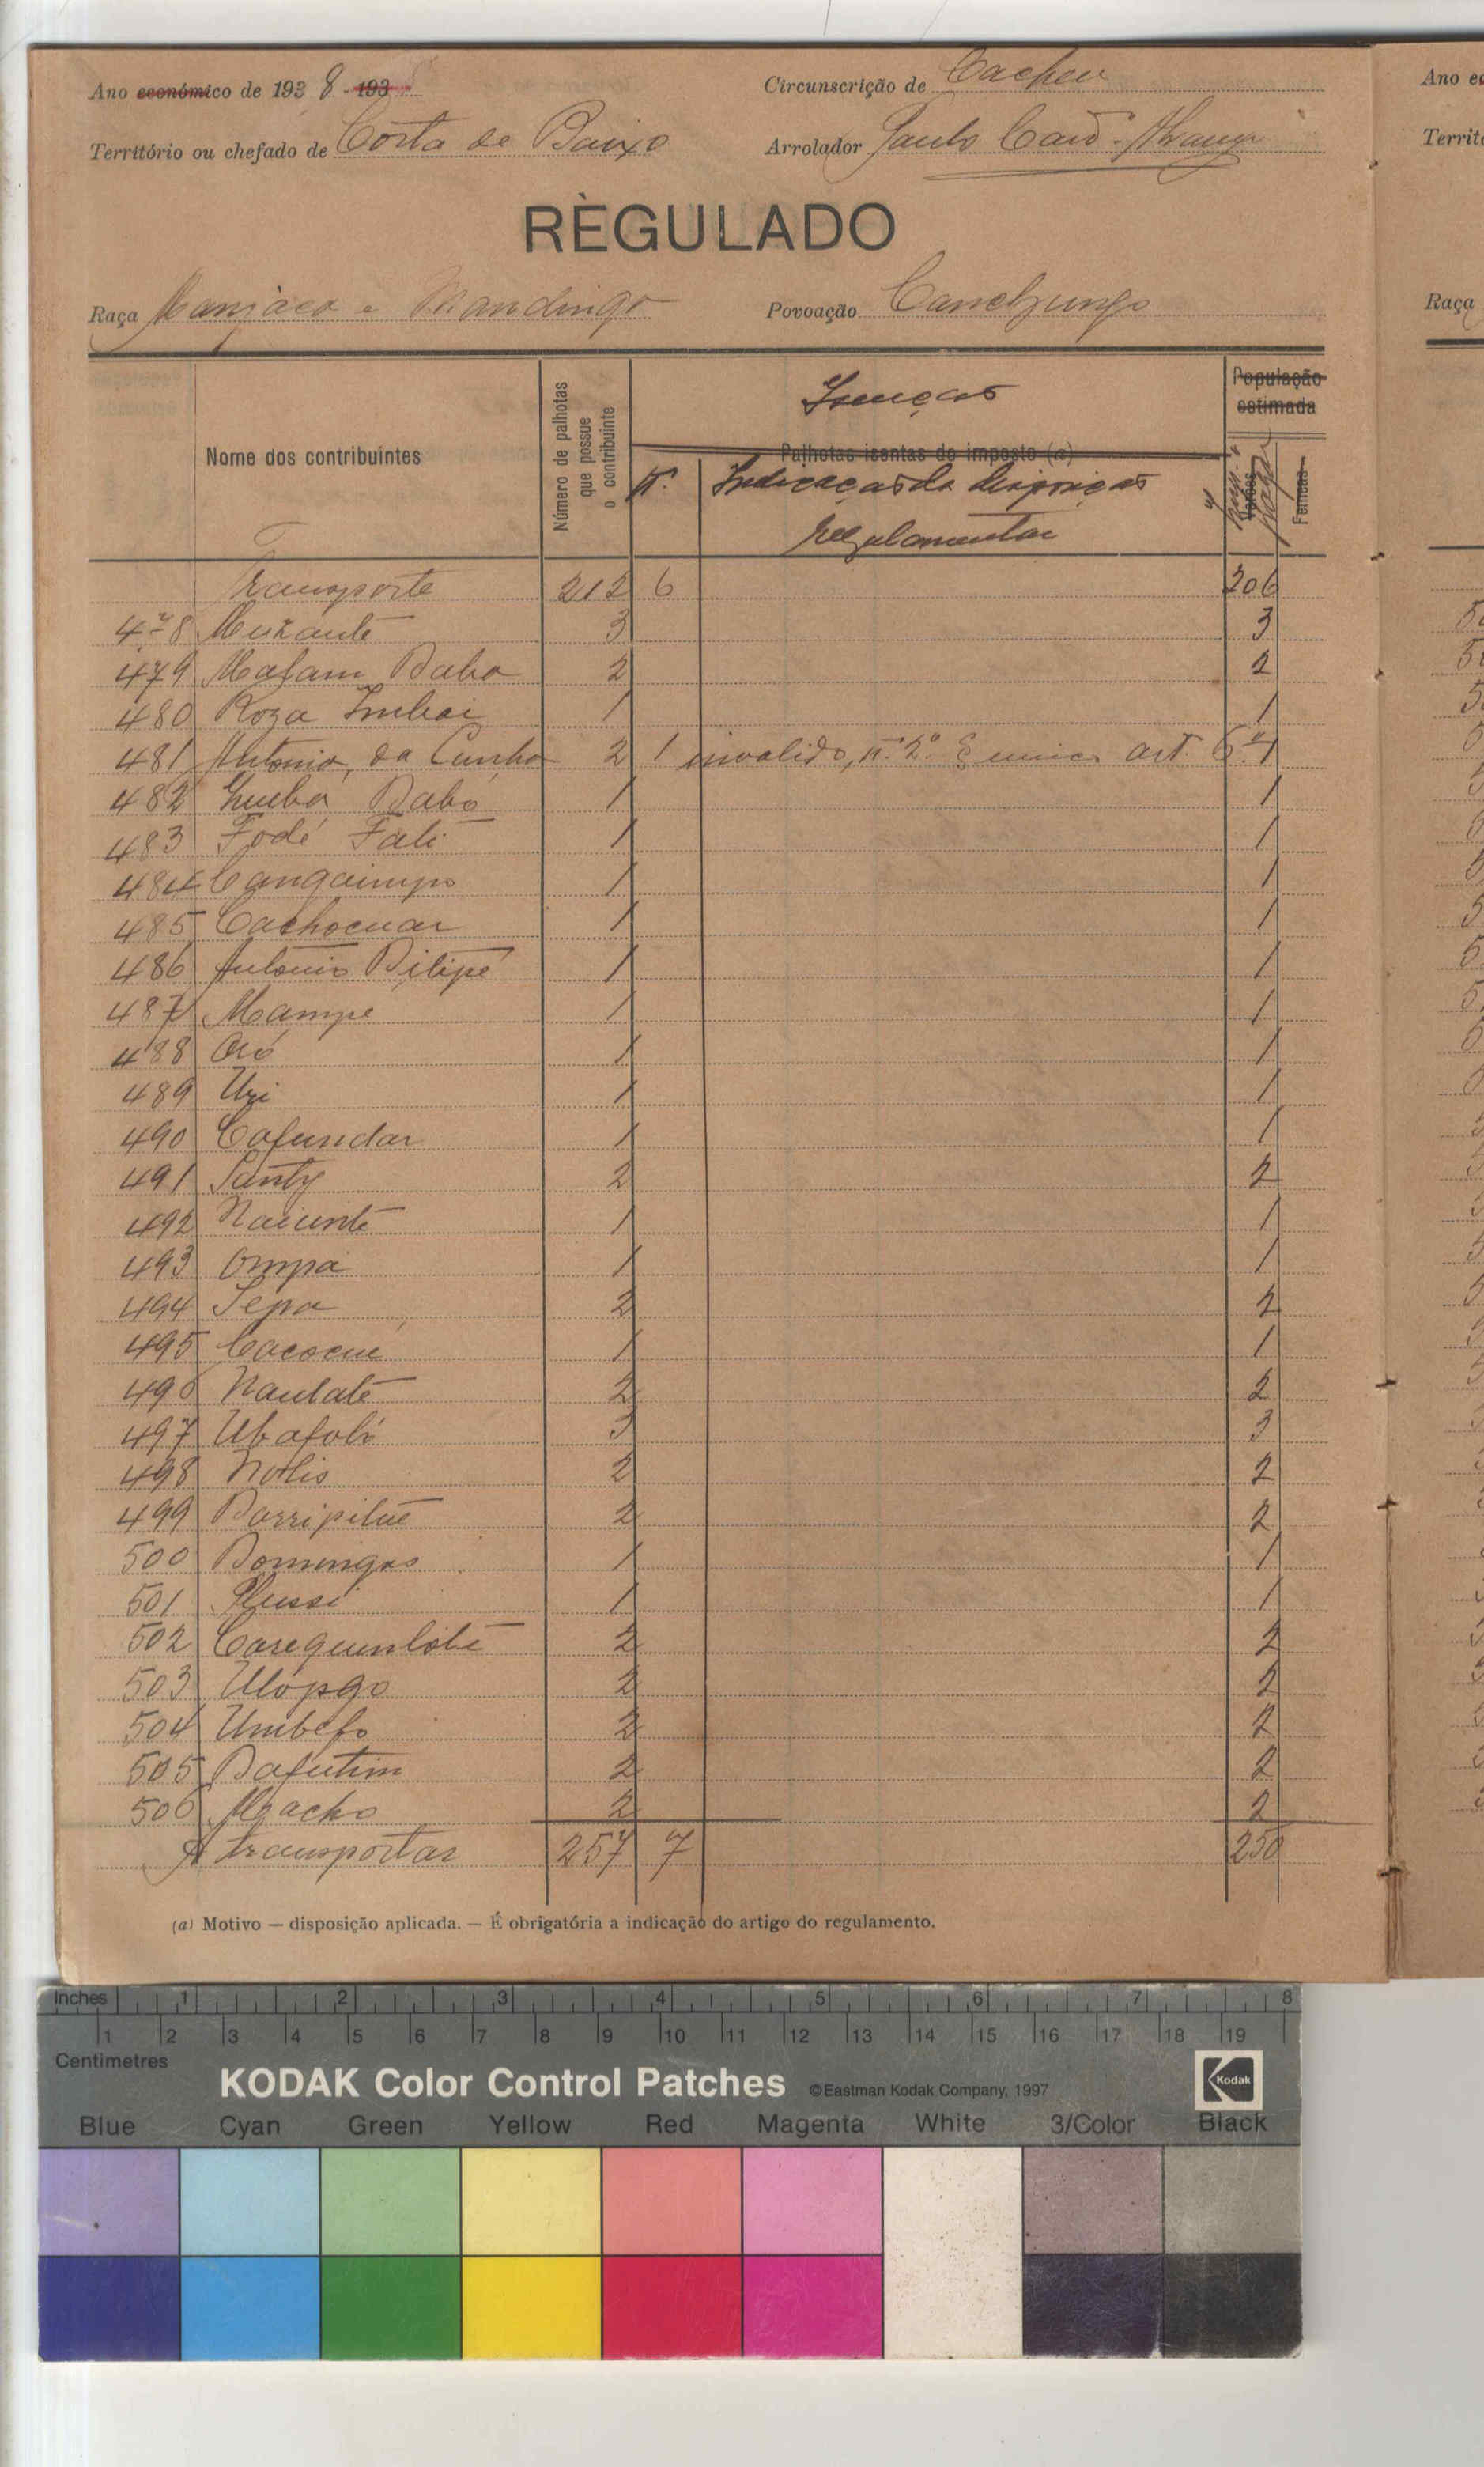 Ano económico de 1938-193
Circunscrição de Cacheu
Território ou chefado de Costa de Baixo
Arrolador Paulo
REGULADO
Raça Manjaca e Mandinga
Povoação Canchungo
Nome dos contribuintes
Número de palhotas que possue o contribuinte
Isenções
Palhotas isentas do imposto (a)
N.º
Indicação da disposição
regulamentar
População
estimada
Varões
Femeas
Transporte 212 6 206
478 3 3
479 Malam Dabo 2 2
480 Roza Imbai 1 1
481 Antonio, da Cunha 2 1 invalido, n.º 2º § unico art. 6º 1
482 Dabó 1 1
483 Fodé Fati 1 1
484 Canquimpo 1 1
485 Cachocuar 1 1
486 Antonio Filipe 1 1
487 Mampe 1 1
488 1 1
489 Uzi 1 1
490 Cafundar 1 1
491 Santy 2 2
492 Naiunté 1 1
493 Ompa 1 1
494 Sepa 2 2
495 Cacocué 1 1
496 Nautaté 2 2
497 Ubafoli 3 3
498 Notis 2 2
499 Barripitué 2 2
500 Domingas 1 1
501 1 1
502 Carequimloté 2 2
503 Ulopgo 2 2
504 Umbefo 2 2
505 Dafutim 2 2
506 2 2
A transportar 257 7 250
(a) Motivo — disposição aplicada. — É obrigatória a indicação do artigo do regulamento.
Ano
Territ
Raça
Inches 1 2 3 4 5 6 7 8
1 2 3 4 5 6 7 8 9 10 11 12 13 14 15 16 17 18 19
Centimetres
KODAK Color Control Patches ©Eastman Kodak Company, 1997 Kodak
Blue Cyan Green Yellow Red Magenta White 3/Color Black